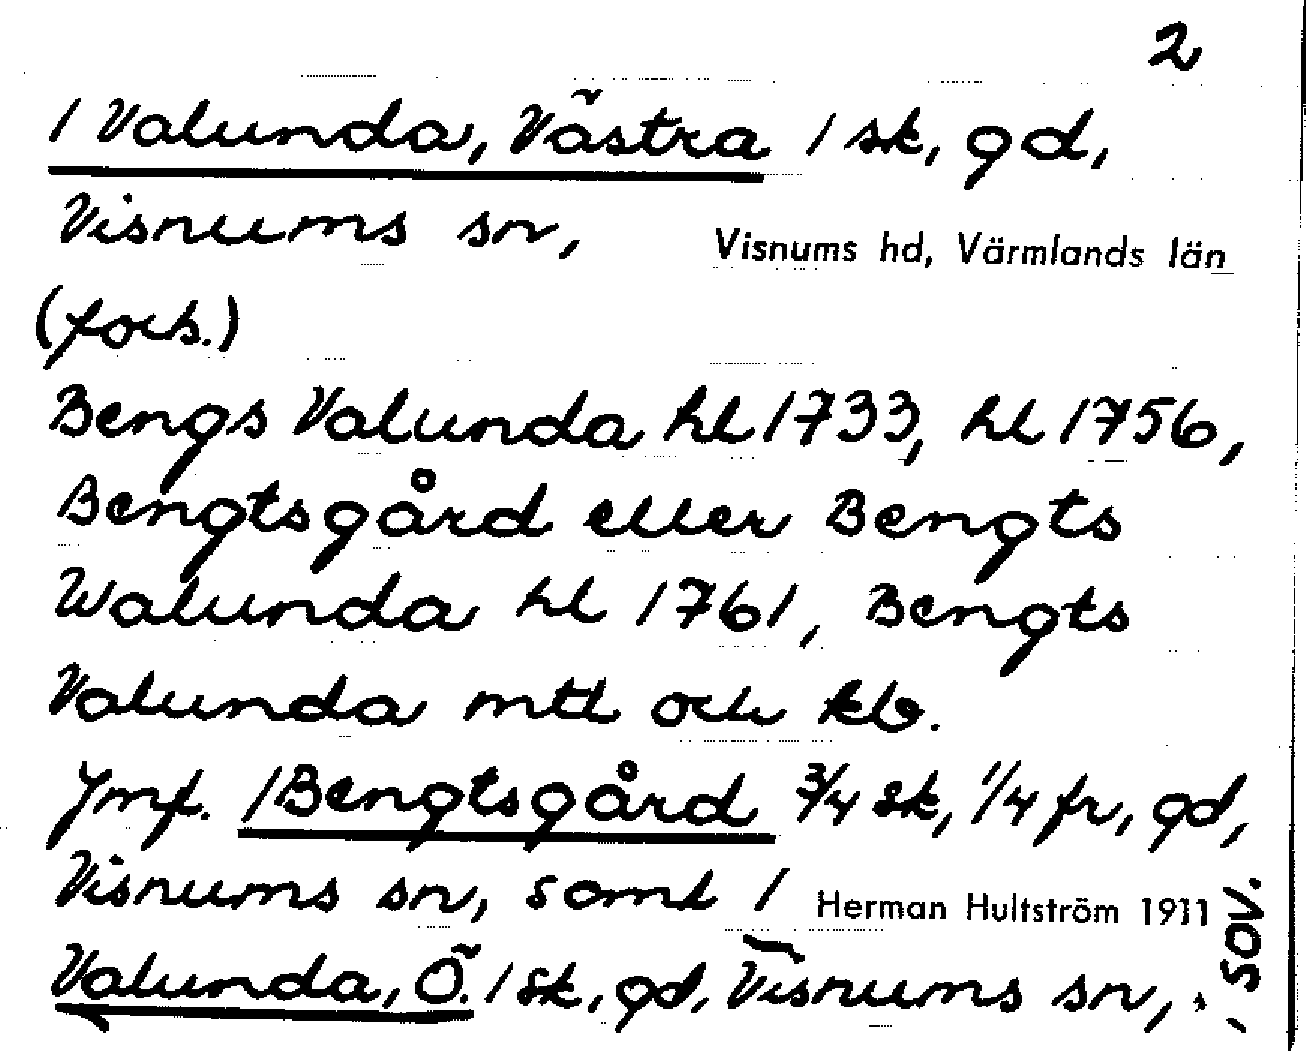 2
/ Valunda, Västra / sk, gd,
Visnums sn, Visnums hd, Värmlands län
(forts.)
Bengs Valunda hl 1733, hl 1756,
Bengtsgård eller Bengts
Walunda hl 1761, Bengts
Valunda mtl och kb.
Jmf. /Bengtsgård 3/4 sk, 1/4 fr, gd,
Visnums sn, samt / Herman Hultström 1911
Valunda, Ö. / sk, gd, Visnums sn,
SOV.